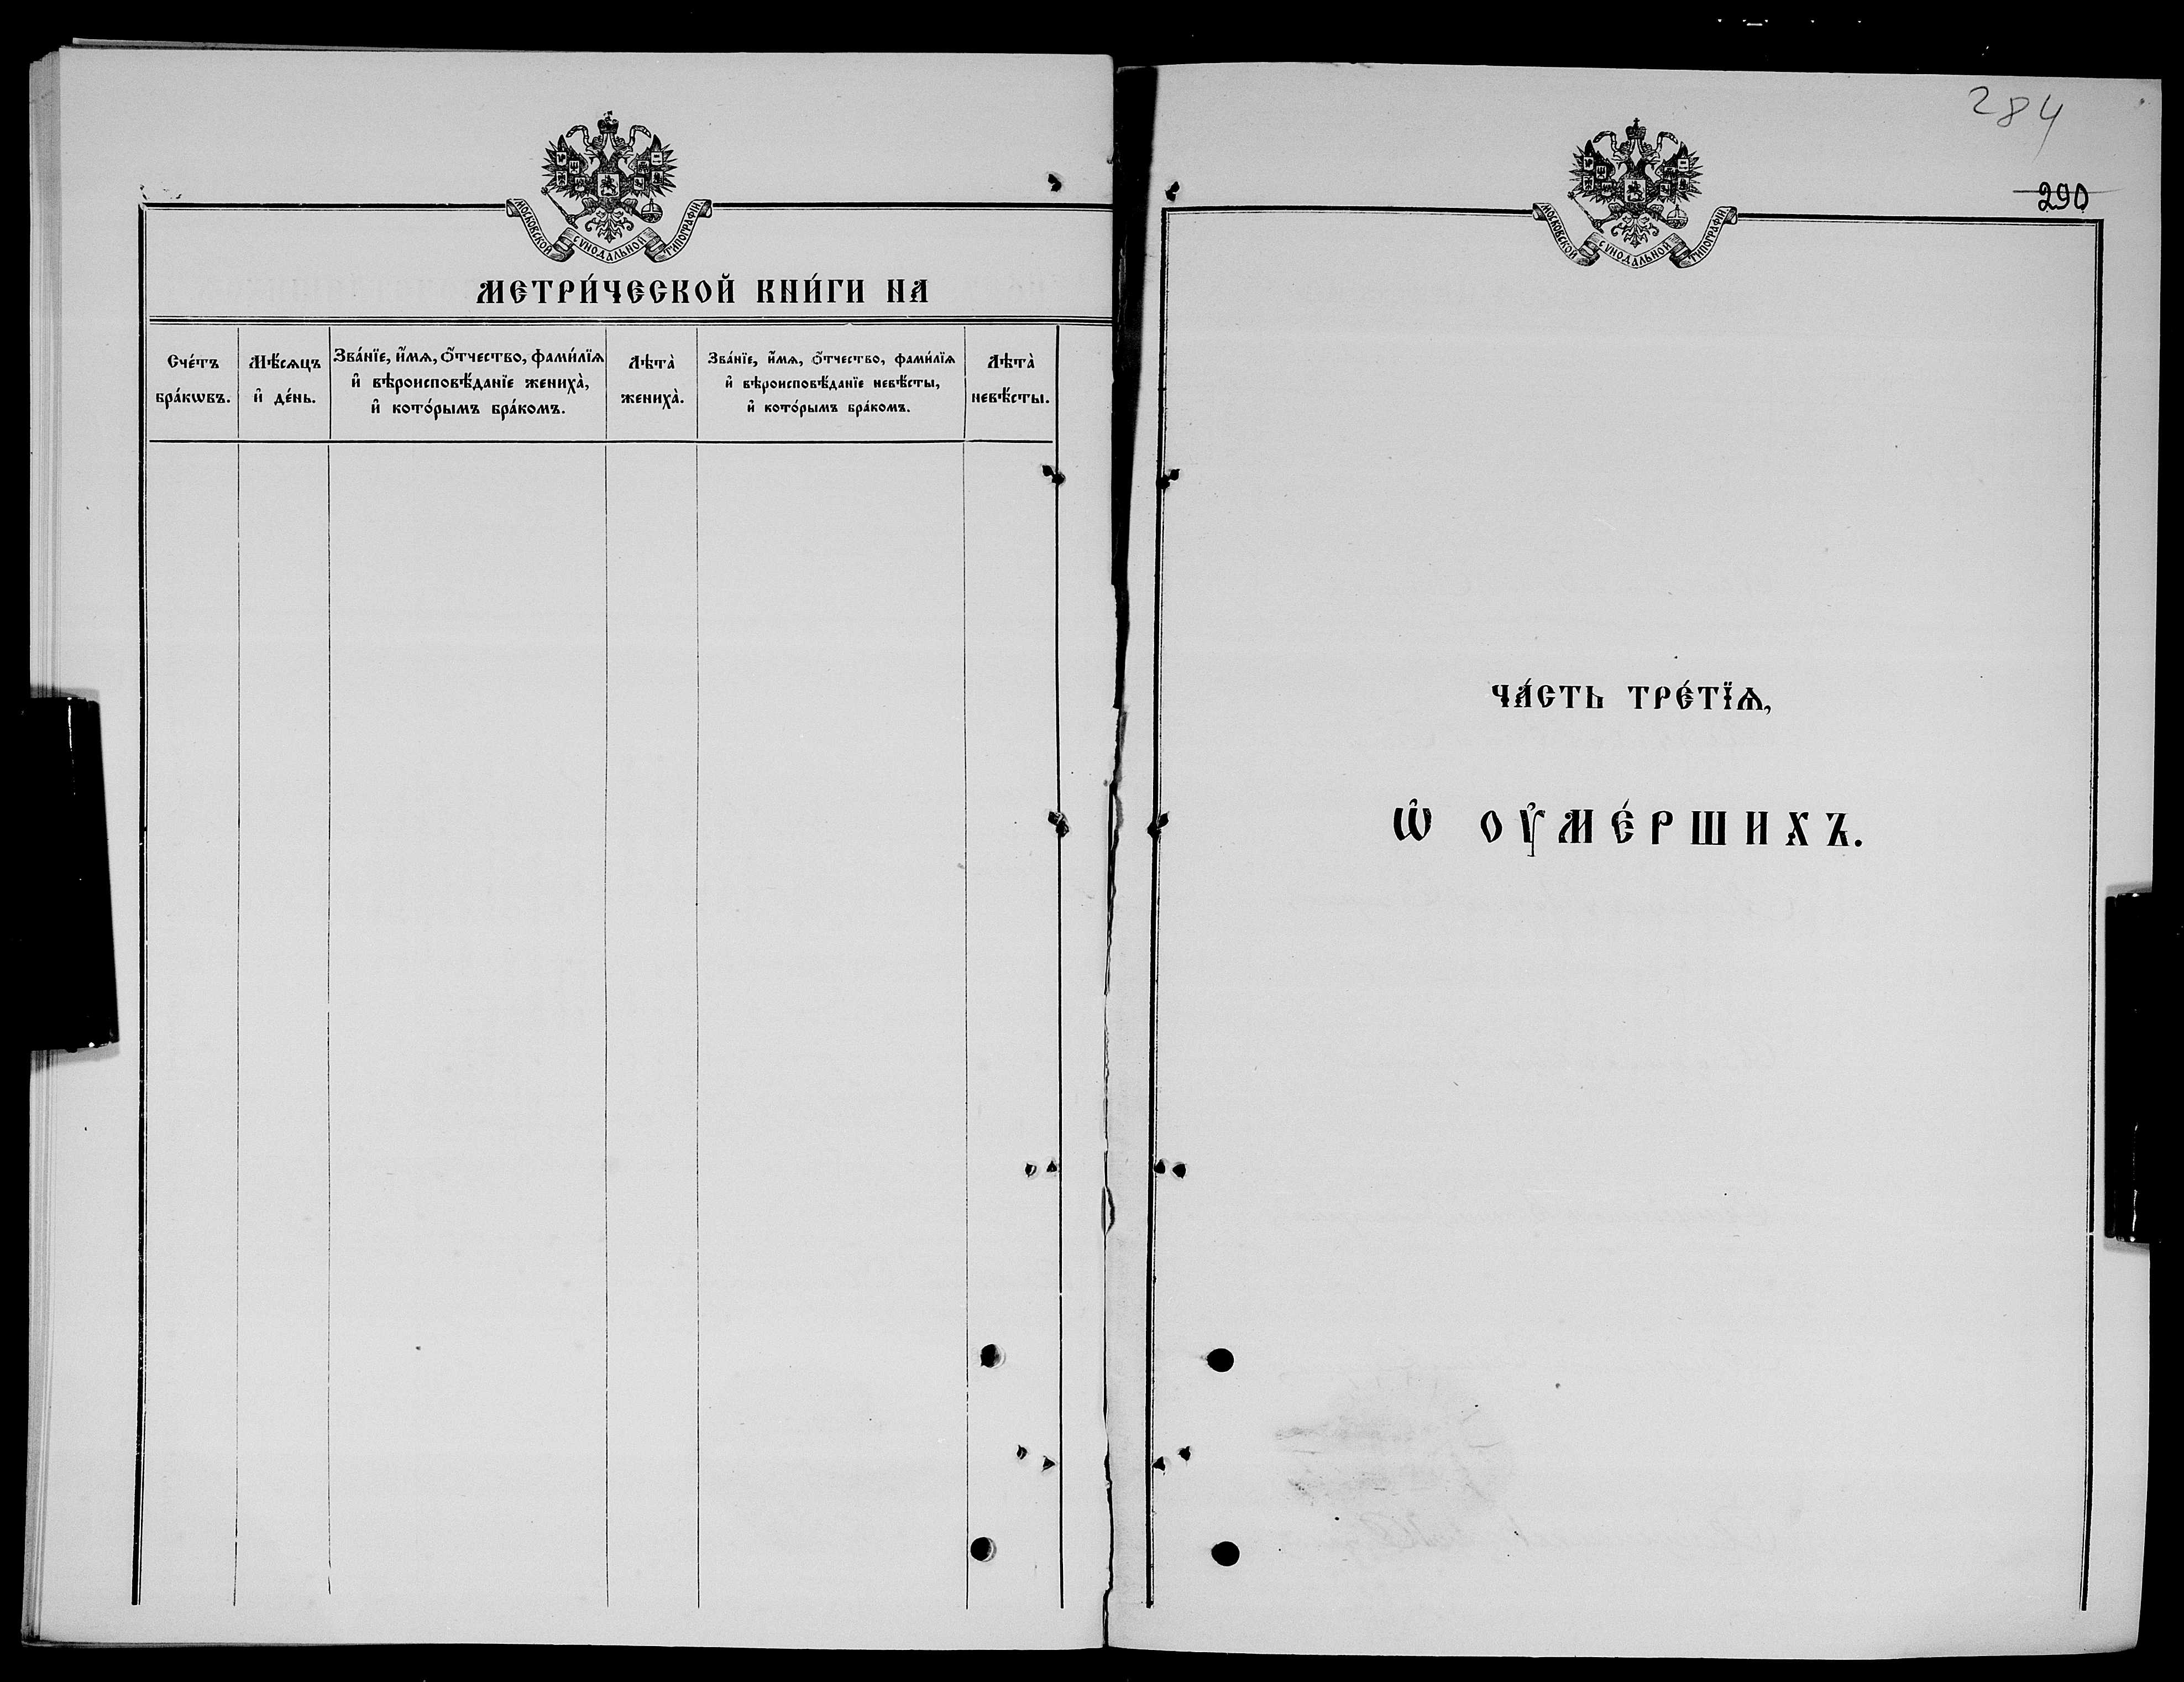 МОСКОВСКОЙ СѴНОДАЛЬНОЙ ТИПОГРАФІИ
МЕТРИ́ЧЕСКОЙ КНИ́ГИ НА
Сче́тъ
бра́кѡвъ.
Мѣ́сѧцъ
и҆ де́нь.
Зва́нїе, и҆́мѧ, ѻ҆́тчество, фами́лїѧ
и҆ вѣроисповѣ́данїе жениха̀,
и҆ кото́рымъ бра́комъ.
Лѣта̀
жениха̀.
Зва́нїе, и҆́мѧ, ѻ҆́тчество, фами́лїѧ
и҆ вѣроисповѣ́данїе невѣ́сты,
и҆ кото́рымъ бра́комъ.
Лѣта̀
невѣ́сты.
284
290
МОСКОВСКОЙ СѴНОДАЛЬНОЙ ТИПОГРАФІИ
ЧА́СТЬ ТРЕ́ТЇѦ,
Ѡ҆ ОУ҆МЕ́РШИХЪ.